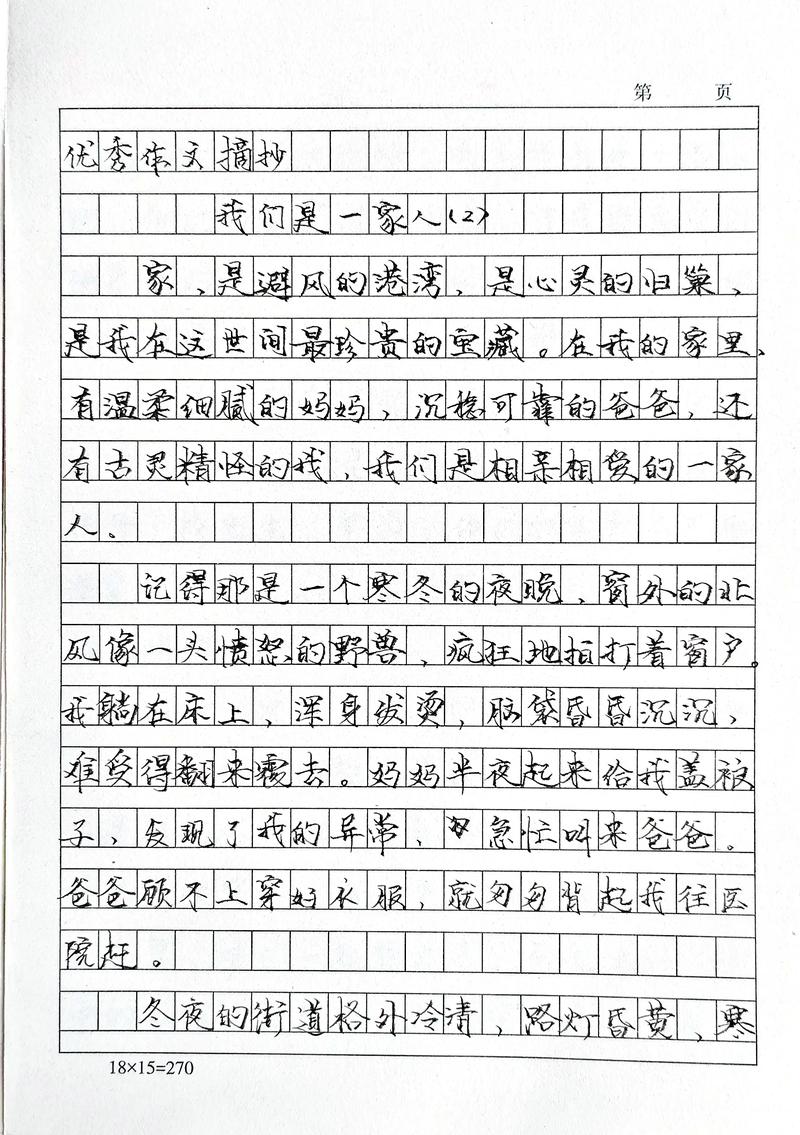 第 页
优秀作文摘抄
我们是一家人(2)
家,是避风的港湾,是心灵的归巢,
是我在这世间最珍贵的宝藏。在我的家里,
有温柔细腻的妈妈,沉稳可靠的爸爸,还
有古灵精怪的我,我们是相亲相爱的一家
人。
记得那是一个寒冬的夜晚,窗外的北
风像一头愤怒的野兽,疯狂地拍打着窗户。
我躺在床上,浑身发烫,脑袋昏昏沉沉,
难受得翻来覆去。妈妈半夜起来给我盖被
子,发现了我的异常,急忙叫来爸爸。
爸爸顾不上穿好衣服,就匆匆背起我往医
院赶。
冬夜的街道格外冷清,路灯昏黄,寒
18×15=270